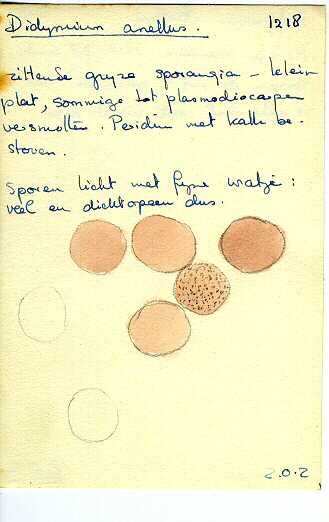 Didymium anellus. 1218
zittende gryze sporangia - klein
plat, sommige tot plasmodiocarpen
versmolten. Peridium met kalk be-
stoven.
Sporen licht met fyne wratje:
veel en dicht opeen dus.
2.0.5